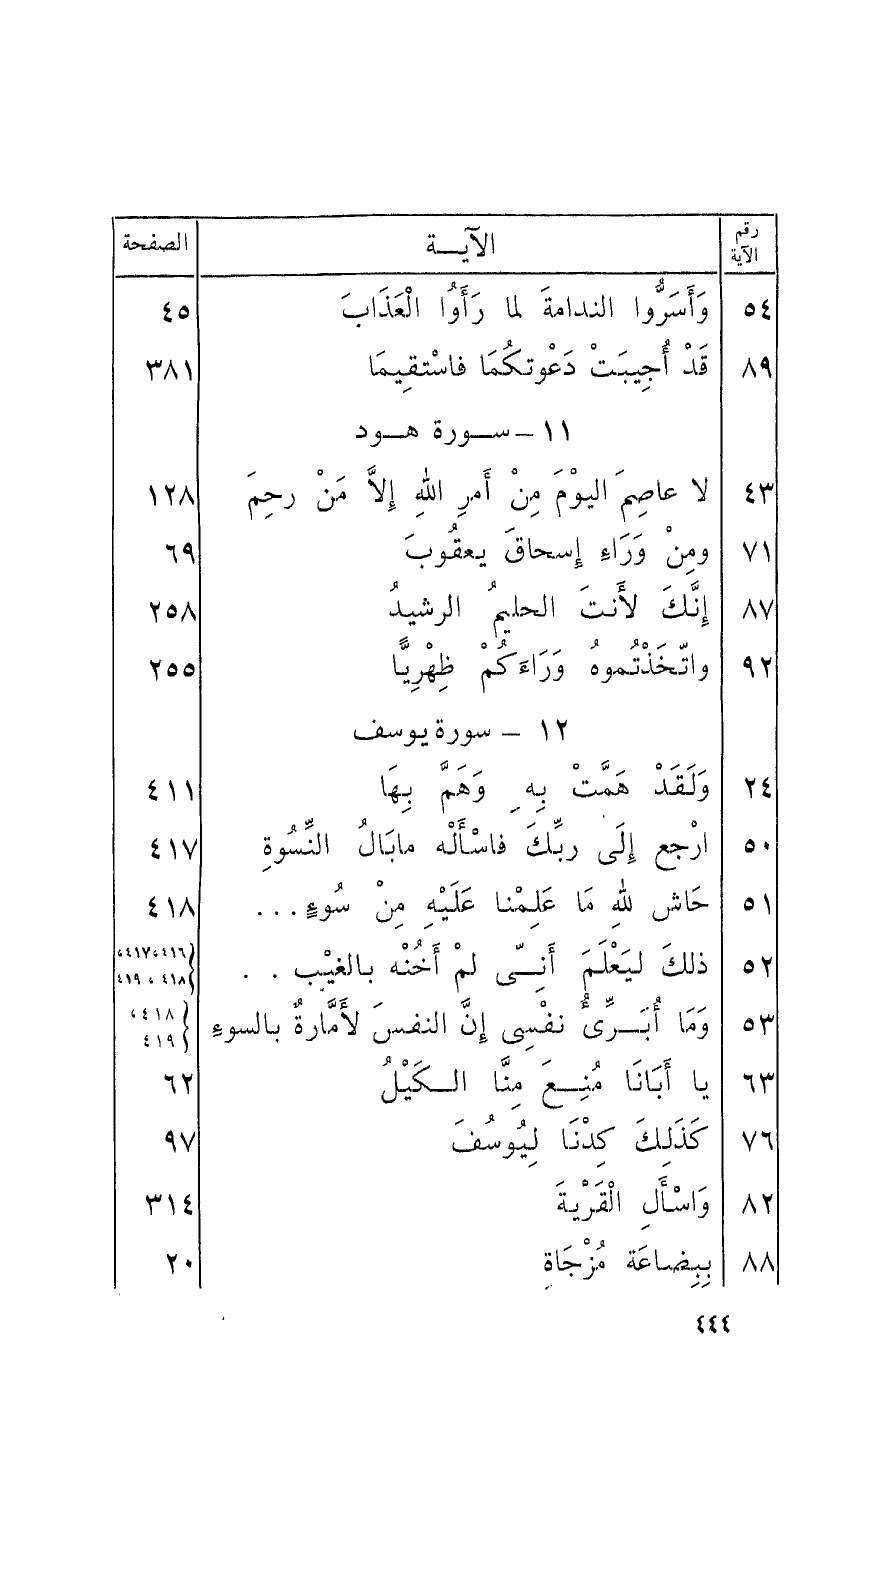 رقم الآية الآيـــة الصفحة
٥٤ وَأَسَرُّوا الندامةَ لما رَأَوُا الْعَذَابَ ٤٥
٨٩ قَدْ أُجِيبَتْ دَعْوتكُمَا فاسْتقِيمَا ٣٨١
١١ – ســورة هــود
٤٣ لا عاصِمَ اليوْمَ مِنْ أَمرِ اللهِ إِلاَّ مَنْ رحِمَ ١٢٨
٧١ ومِنْ وَرَاءِ إسحاقَ يعقُوبَ ٦٩
٨٧ إِنَّكَ لأَنتَ الحليمُ الرشيدُ ٢٥٨
٩٢ واتّخَذْتُموهُ وَرَاءَكُمْ ظِهْرِيًّا ٢٥٥
١٢ – سورة يوسف
٢٤ وَلَقَدْ هَمَّتْ بِهِ وَهَمَّ بِهَا ٤١١
٥٠ ارْجع إِلَى ربِّكَ فاسْأَلْه مابَالُ النِّسُوةِ ٤١٧
٥١ حَاش للهِ مَا عَلِمْنا عَلَيْهِ مِنْ سُوءٍ... ٤١٨
٥٢ ذلكَ ليَعْلَمَ أَنِــّى لمْ أَخُنْه بالغيْب . . ٤١٦،٤١٧، ٤١٨ ، ٤١٩
٥٣ وَمَا أُبَــرِّئُ نفْسِى إِنَّ النفسَ لأَمَّارةٌ بالسوءِ ٤١٨، ٤١٩
٦٣ يا أَبَانَا مُنِــعَ مِنَّا الــكَيْلُ ٦٢
٧٦ كَذَلِكَ كِدْنَا لِيُوسُفَ ٩٧
٨٢ وَاسْأَلِ الْقَرْيةَ ٣١٤
٨٨ بِبِضاعَة مُزْجَاةٍ ٢٠
٤٤٤